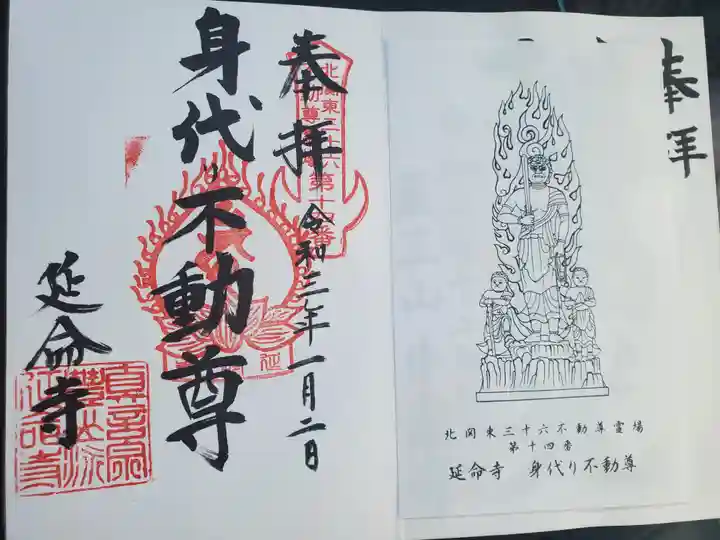 奉拝
北関東三十六
不動尊
第十四番
令和三年一月二日
身代り不動尊
延命寺
延
奉拝
北関東三十六不動尊霊場
第十四番
延命寺 身代り不動尊